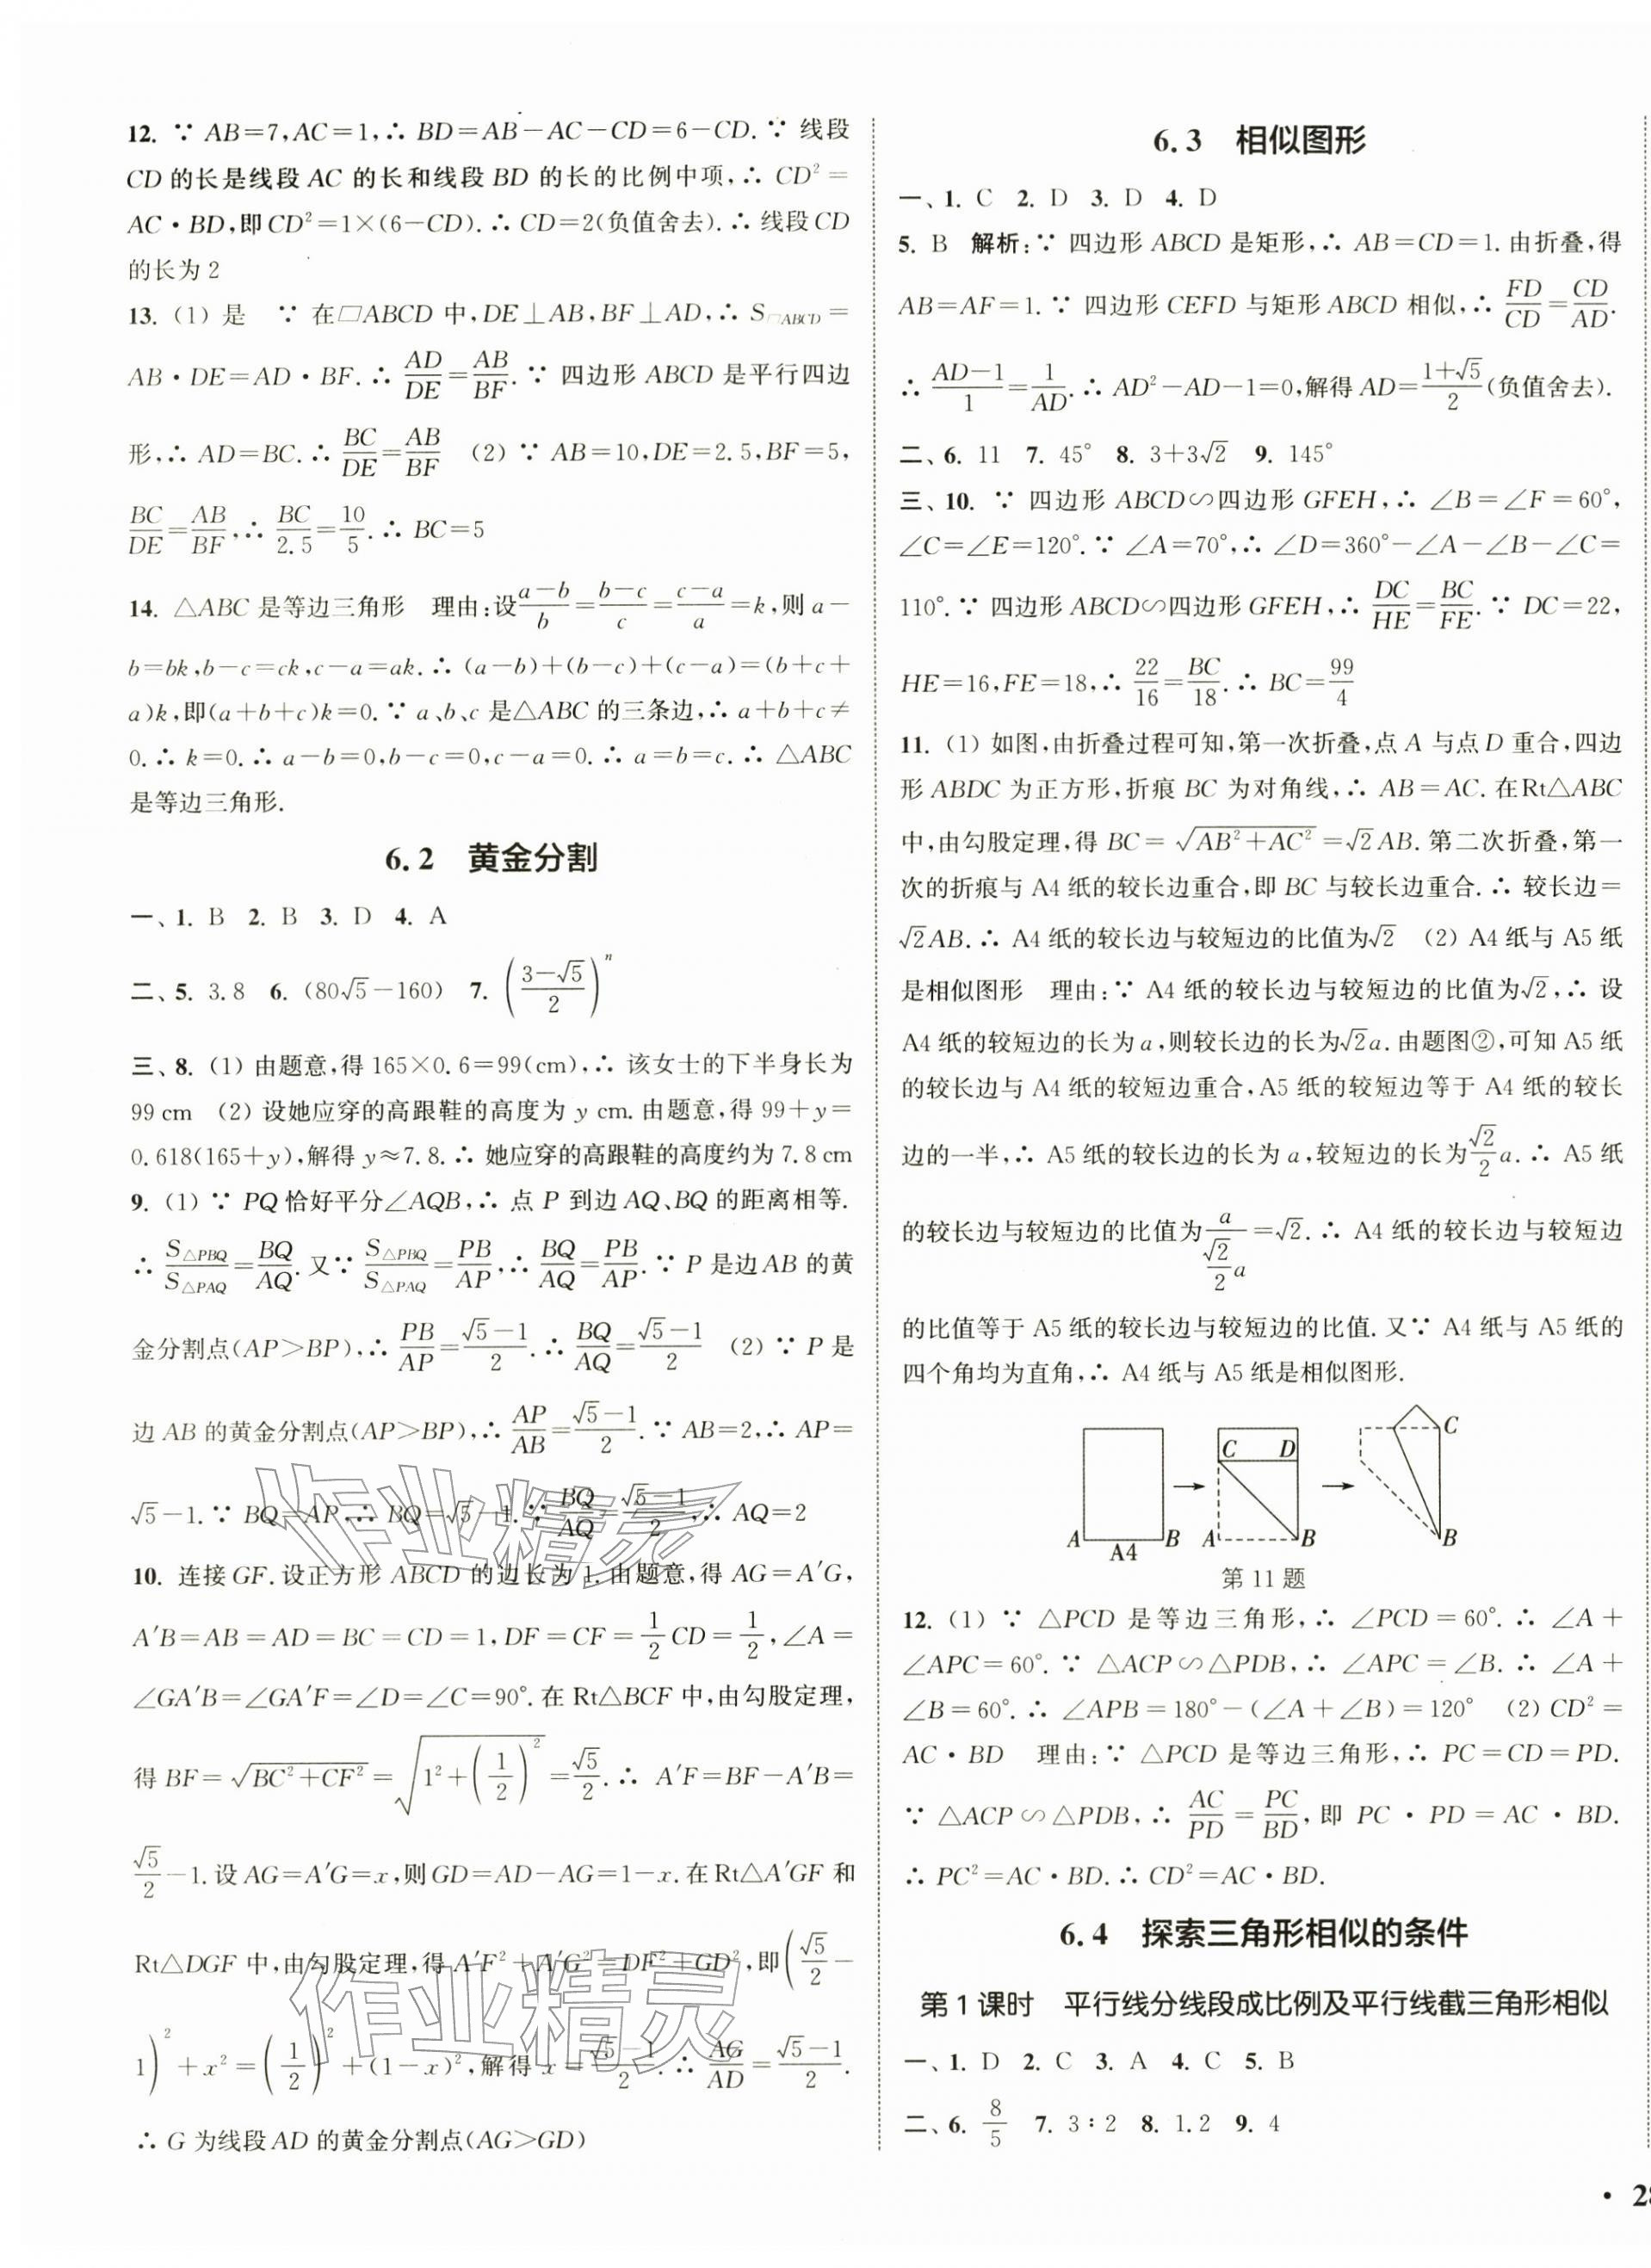 12. ∵ AB=7,AC=1,∴ BD=AB-AC-CD=6-CD. ∵ 线段
CD 的长是线段 AC 的长和线段 BD 的长的比例中项,∴ CD²=
AC·BD,即 CD²=1×(6-CD). ∴ CD=2(负值舍去). ∴ 线段 CD
的长为 2
13. (1) 是 ∵ 在▱ABCD 中,DE⊥AB,BF⊥AD,∴ S▱ABCD=
AB·DE=AD·BF. ∴ AD/DE=AB/BF. ∵ 四边形 ABCD 是平行四边
形,∴ AD=BC. ∴ BC/DE=AB/BF (2) ∵ AB=10,DE=2.5,BF=5,
BC/DE=AB/BF,∴ BC/2.5=10/5. ∴ BC=5
14. △ABC 是等边三角形 理由:设(a-b)/b=(b-c)/c=(c-a)/a=k,则 a-
b=bk,b-c=ck,c-a=ak. ∴ (a-b)+(b-c)+(c-a)=(b+c+
a)k,即(a+b+c)k=0. ∵ a、b、c 是△ABC 的三条边,∴ a+b+c≠
0. ∴ k=0. ∴ a-b=0,b-c=0,c-a=0. ∴ a=b=c. ∴ △ABC
是等边三角形.
6.2 黄金分割
一、1. B 2. B 3. D 4. A
二、5. 3.8 6. (80√5-160) 7. ((3-√5)/2)ⁿ
三、8. (1) 由题意,得 165×0.6=99(cm),∴ 该女士的下半身长为
99 cm (2) 设她应穿的高跟鞋的高度为 y cm. 由题意,得 99+y=
0.618(165+y),解得 y≈7.8. ∴ 她应穿的高跟鞋的高度约为 7.8 cm
9. (1) ∵ PQ 恰好平分∠AQB,∴ 点 P 到边 AQ、BQ 的距离相等.
∴ S△PBQ/S△PAQ=BQ/AQ. 又∵ S△PBQ/S△PAQ=PB/AP,∴ BQ/AQ=PB/AP. ∵ P 是边 AB 的黄
金分割点(AP>BP),∴ PB/AP=(√5-1)/2. ∴ BQ/AQ=(√5-1)/2 (2) ∵ P 是
边 AB 的黄金分割点(AP>BP),∴ AP/AB=(√5-1)/2. ∵ AB=2,∴ AP=
√5-1. ∵ BQ=AP,∴ BQ=√5-1. ∵ BQ/AQ=(√5-1)/2,∴ AQ=2
10. 连接 GF. 设正方形 ABCD 的边长为 1. 由题意,得 AG=A′G,
A′B=AB=AD=BC=CD=1,DF=CF=1/2 CD=1/2,∠A=
∠GA′B=∠GA′F=∠D=∠C=90°. 在 Rt△BCF 中,由勾股定理,
得 BF=√(BC²+CF²)=√(1²+(1/2)²)=√5/2. ∴ A′F=BF-A′B=
√5/2-1. 设 AG=A′G=x,则 GD=AD-AG=1-x. 在 Rt△A′GF 和
Rt△DGF 中,由勾股定理,得 A′F²+A′G²=DF²+GD²,即(√5/2-
1)²+x²=(1/2)²+(1-x)²,解得 x=(√5-1)/2. ∴ AG/AD=(√5-1)/2.
∴ G 为线段 AD 的黄金分割点(AG>GD)
作业精灵
作业精灵
6.3 相似图形
一、1. C 2. D 3. D 4. D
5. B 解析:∵ 四边形 ABCD 是矩形,∴ AB=CD=1. 由折叠,得
AB=AF=1. ∵ 四边形 CEFD 与矩形 ABCD 相似,∴ FD/CD=CD/AD.
∴ (AD-1)/1=1/AD. ∴ AD²-AD-1=0,解得 AD=(1+√5)/2(负值舍去).
二、6. 11 7. 45° 8. 3+3√2 9. 145°
三、10. ∵ 四边形 ABCD∽四边形 GFEH,∴ ∠B=∠F=60°,
∠C=∠E=120°. ∵ ∠A=70°,∴ ∠D=360°-∠A-∠B-∠C=
110°. ∵ 四边形 ABCD∽四边形 GFEH,∴ DC/HE=BC/FE. ∵ DC=22,
HE=16,FE=18,∴ 22/16=BC/18. ∴ BC=99/4
11. (1) 如图,由折叠过程可知,第一次折叠,点 A 与点 D 重合,四边
形 ABDC 为正方形,折痕 BC 为对角线,∴ AB=AC. 在 Rt△ABC
中,由勾股定理,得 BC=√(AB²+AC²)=√2AB. 第二次折叠,第一
次的折痕与 A4 纸的较长边重合,即 BC 与较长边重合. ∴ 较长边=
√2AB. ∴ A4 纸的较长边与较短边的比值为√2 (2) A4 纸与 A5 纸
是相似图形 理由:∵ A4 纸的较长边与较短边的比值为√2,∴ 设
A4 纸的较短边的长为 a,则较长边的长为√2a. 由题图②,可知 A5 纸
的较长边与 A4 纸的较短边重合,A5 纸的较短边等于 A4 纸的较长
边的一半,∴ A5 纸的较长边的长为 a,较短边的长为√2/2 a. ∴ A5 纸
的较长边与较短边的比值为a/(√2/2 a)=√2. ∴ A4 纸的较长边与较短边
的比值等于 A5 纸的较长边与较短边的比值. 又∵ A4 纸与 A5 纸的
四个角均为直角,∴ A4 纸与 A5 纸是相似图形.
C
C D
A B A B B
A4
第 11 题
12. (1) ∵ △PCD 是等边三角形,∴ ∠PCD=60°. ∴ ∠A+
∠APC=60°. ∵ △ACP∽△PDB,∴ ∠APC=∠B. ∴ ∠A+
∠B=60°. ∴ ∠APB=180°-(∠A+∠B)=120° (2) CD²=
AC·BD 理由:∵ △PCD 是等边三角形,∴ PC=CD=PD.
∵ △ACP∽△PDB,∴ AC/PD=PC/BD,即 PC·PD=AC·BD.
∴ PC²=AC·BD. ∴ CD²=AC·BD.
6.4 探索三角形相似的条件
第 1 课时 平行线分线段成比例及平行线截三角形相似
一、1. D 2. C 3. A 4. C 5. B
二、6. 8/5 7. 3∶2 8. 1.2 9. 4